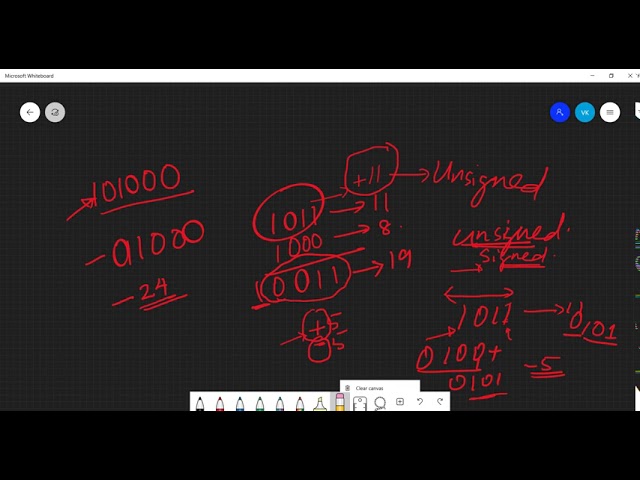 Microsoft Whiteboard
VK
101000
-01000
-24
+11 → Unsigned
1011 → 11
1000 → 8
10011 → 19
+5
-5
unsigned.
signed.
1011 → 0101
0100+
0101
-5
Clear canvas